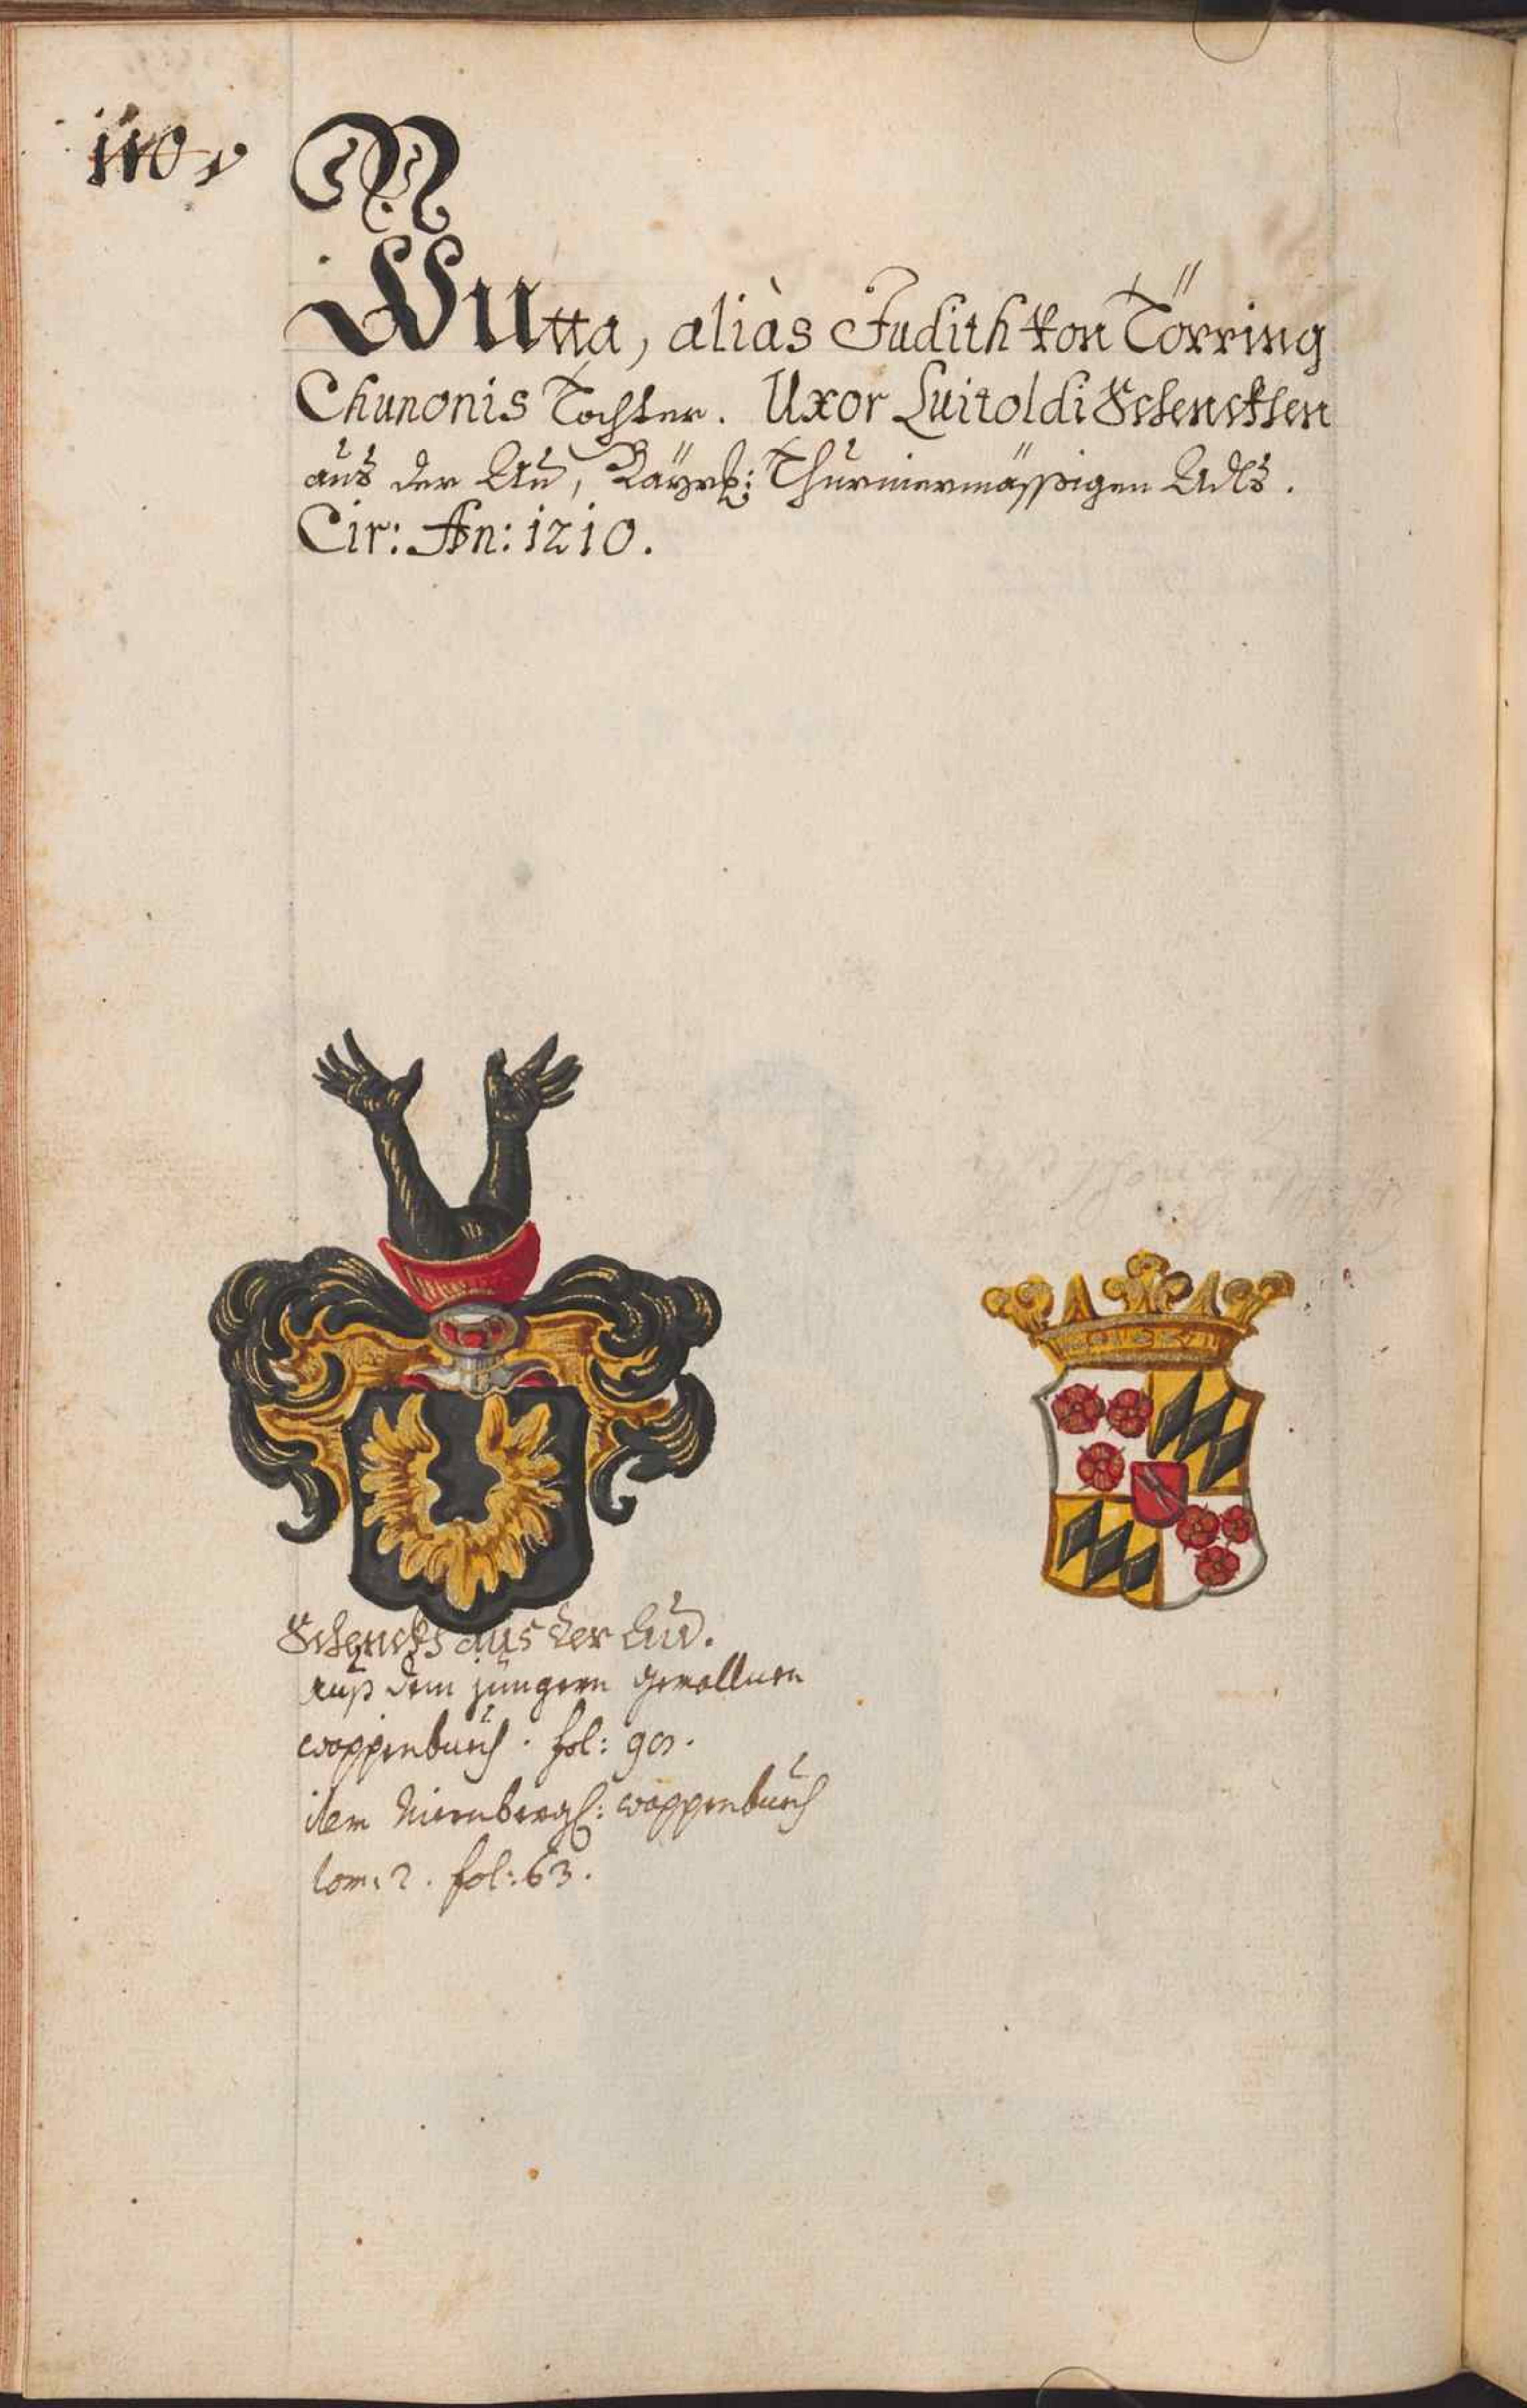 110 v
N
Wutta, aliàs Judith von Törring
Chunonis Tochter. Uxor Luitoldi Schenckhen
aus der Au, Bayrß: Thurniermässigen Adls.
Cir: An: 1210.
Schenckh aus der Au.
auß dem jüngern gemallnen
wappenbuch. fol: 90.
item Nürnbergß: wappenbuch
tom: 2. fol: 63.